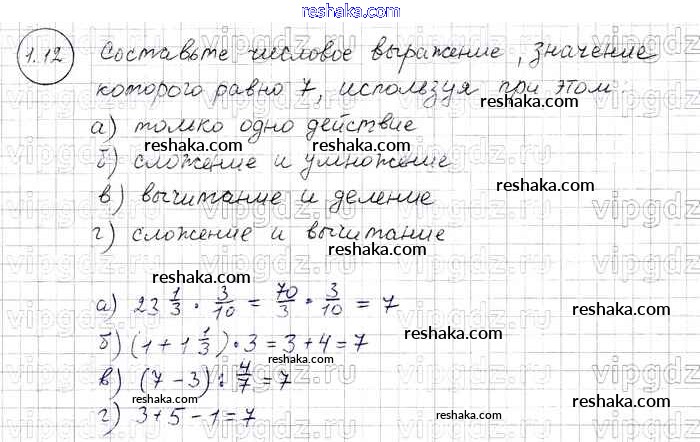 reshaka.com
1.12 Составьте числовое выражение, значение
которого равно 7, используя при этом:
reshaka.com
а) только одно действие
reshaka.com
б) сложение и умножение
reshaka.com
в) вычитание и деление
г) сложение и вычитание
reshaka.com
reshaka.com
reshaka.com
а) 23 1/3 · 3/10 = 70/3 · 3/10 = 7
reshaka.com
б) (1 + 1 1/3) · 3 = 3 + 4 = 7
reshaka.com
в) (7 - 3) : 4/7 = 7
г) 3 + 5 - 1 = 7
reshaka.com
reshaka.com
vipgdz